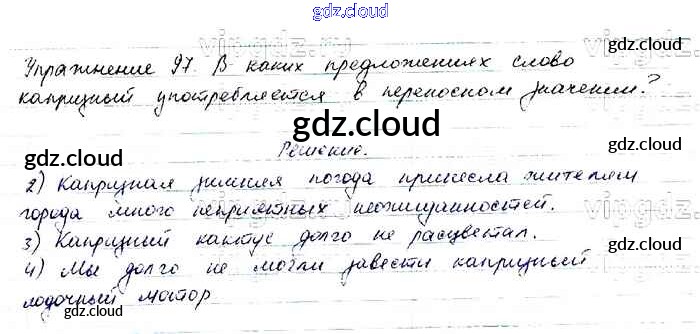 gdz.cloud
vipgdz.ru
gdz.cloud
Упражнение 97. В каких предложениях слово
капризный употребляется в переносном значении?
gdz.cloud
gdz.cloud
gdz.cloud
Решение.
2) Капризная зимняя погода принесла жителям
города много неприятных неожиданностей.
3) Капризный кактус долго не расцветал.
gdz.cloud
4) Мы долго не могли завести капризный
лодочный мотор
gdz.cloud
gdz.cloud